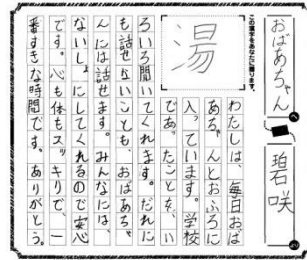 おばあちゃん へ
碧咲 より
この漢字をあなたに贈ります。
湯
わたしは、毎日おば
あちゃんとおふろに
入っています。学校
であったことを、い
ろいろ聞いてくれます。だれに
も話せないことも、おばあちゃ
んには話せます。みんなには、
ないしょにしてくれるので安心
です。心も体もスッキリで、一
番すきな時間です。ありがとう。